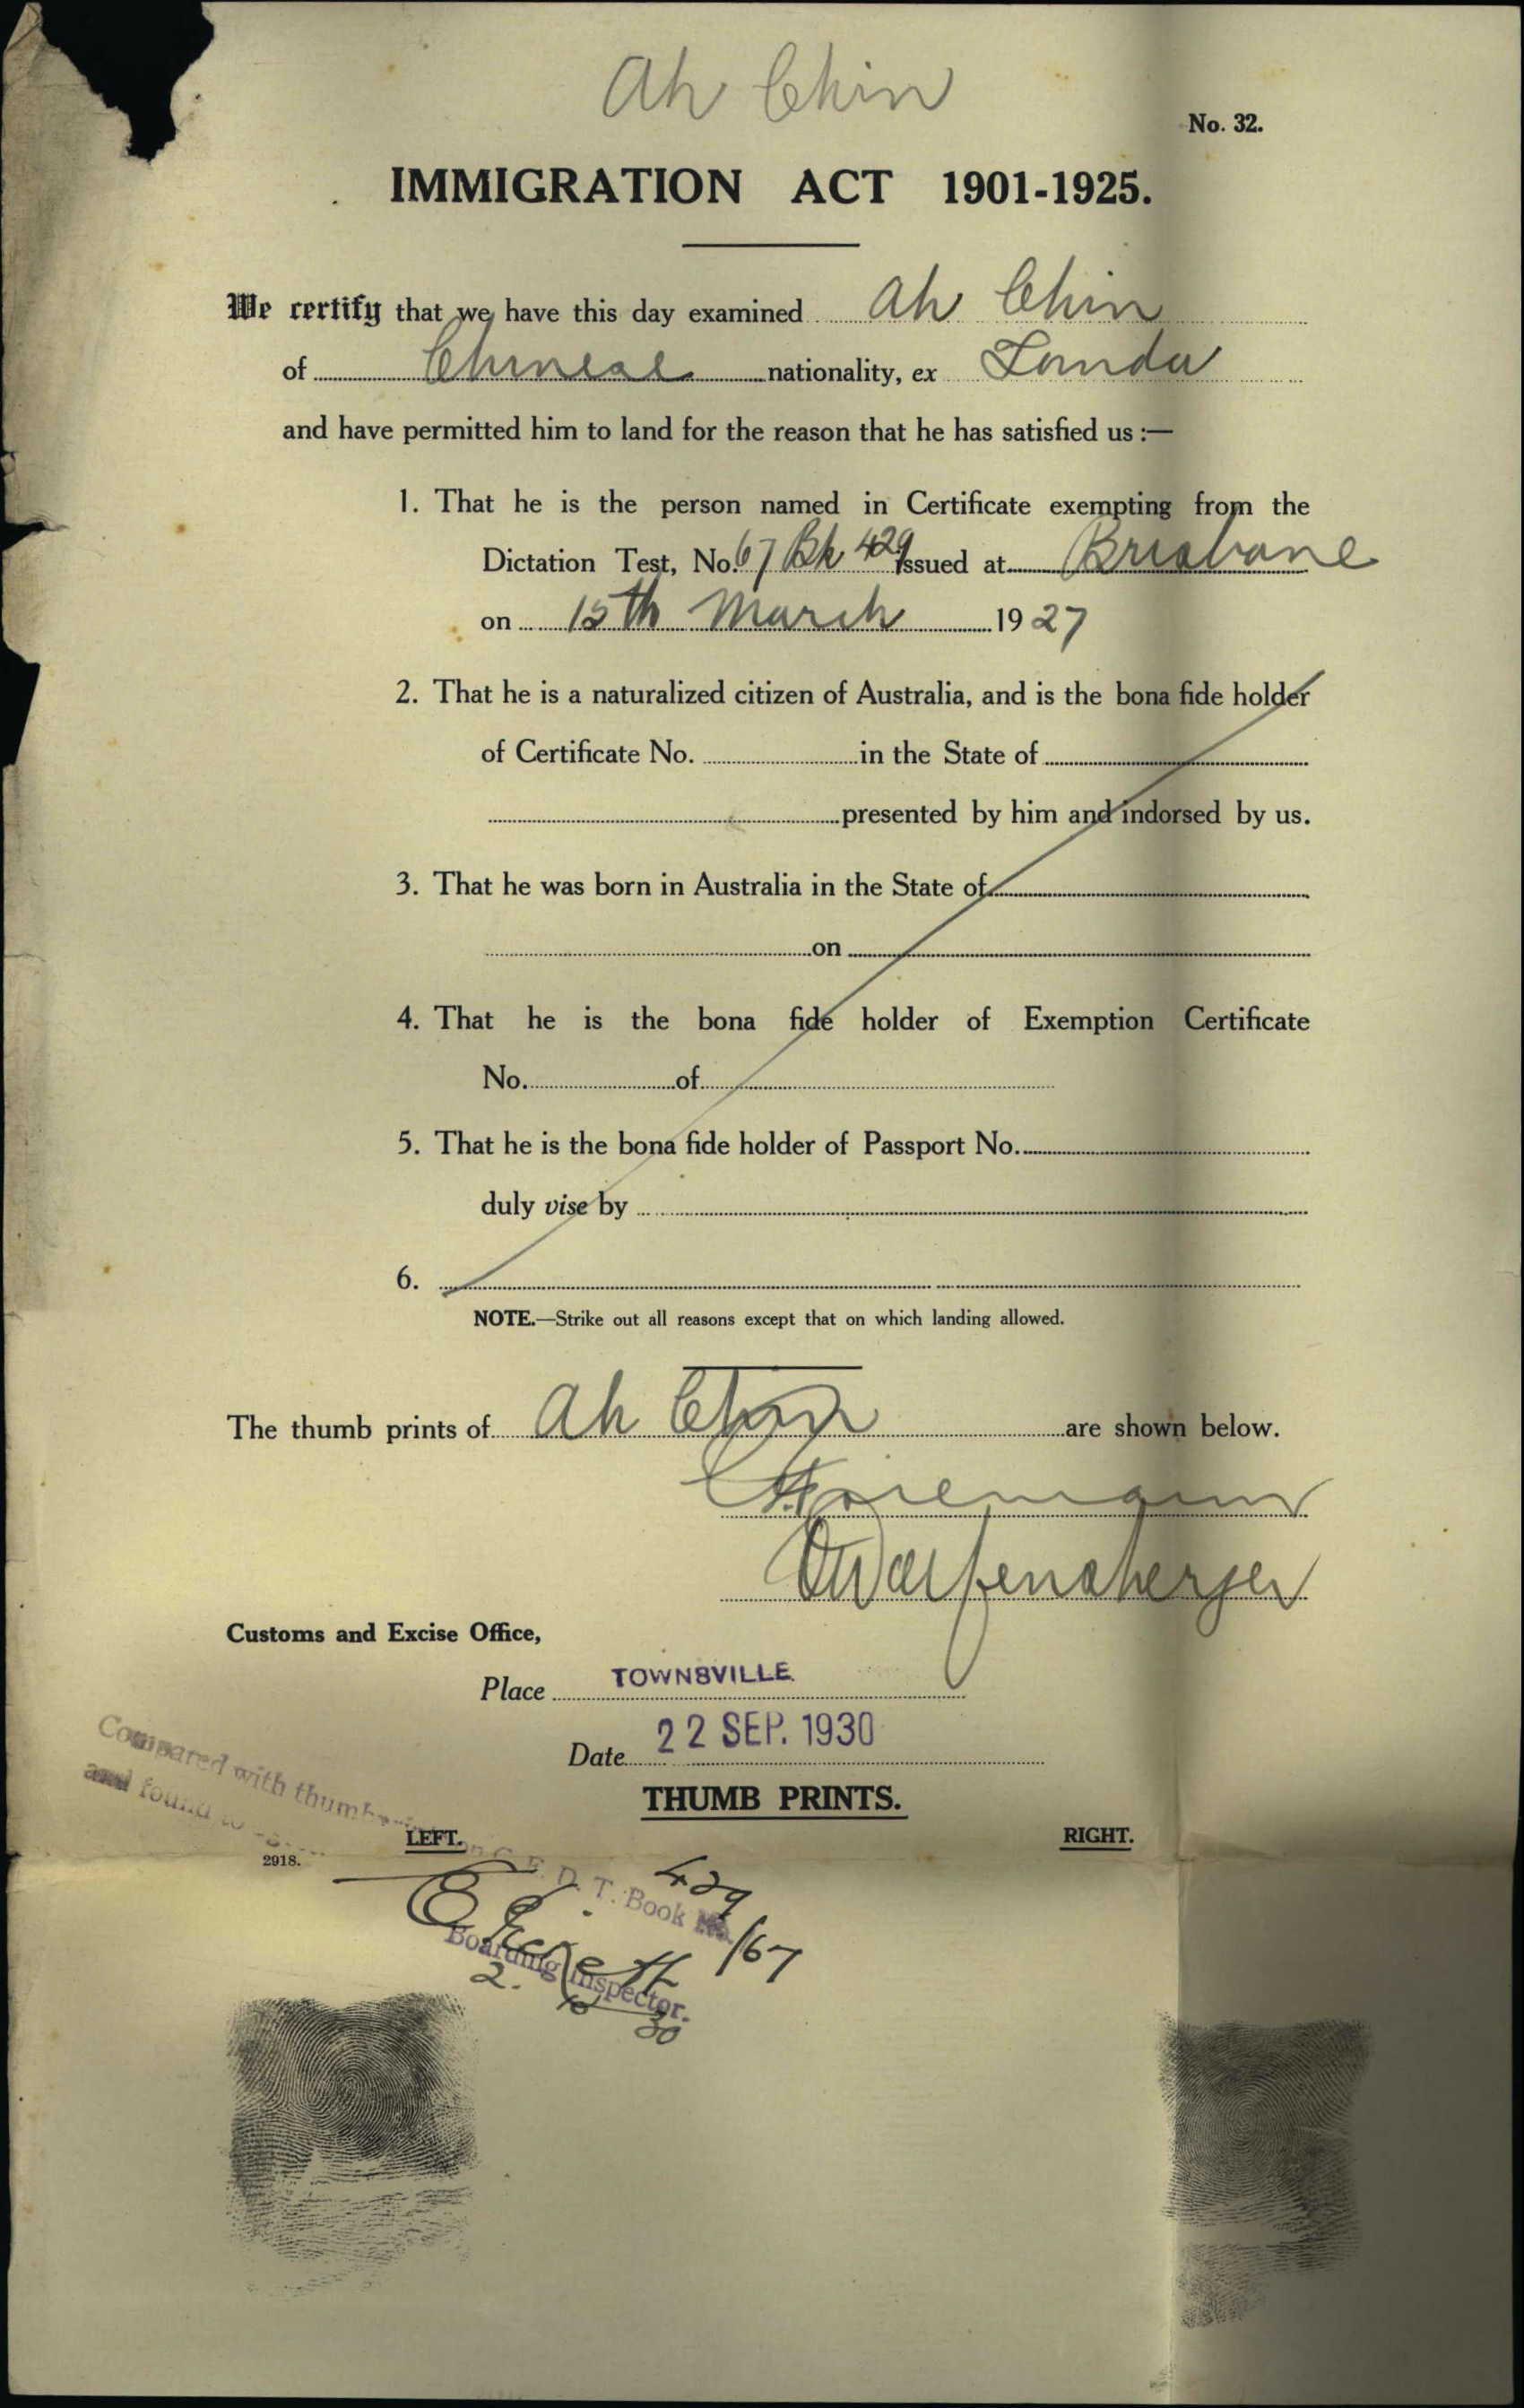 Ah Chin
No. 32.
IMMIGRATION ACT 1901-1925.
We certify that we have this day examined Ah Chin
of Chinese nationality, ex Tanda
and have permitted him to land for the reason that he has satisfied us :—
1. That he is the person named in Certificate exempting from the
Dictation Test, No. 67 Bk 429 issued at Brisbane
on 15th March 1927
2. That he is a naturalized citizen of Australia, and is the bona fide holder
of Certificate No. in the State of
presented by him and indorsed by us.
3. That he was born in Australia in the State of
on
4. That he is the bona fide holder of Exemption Certificate
No. of
5. That he is the bona fide holder of Passport No.
duly vise by
6.
NOTE.—Strike out all reasons except that on which landing allowed.
The thumb prints of Ah Chin are shown below.
Customs and Excise Office,
Place TOWNSVILLE
Date 22 SEP. 1930
THUMB PRINTS.
Compared with thumb
and found to
LEFT. RIGHT.
2918.
D. T. Book No. 429/67
Boarding Inspector.
2. 10 30